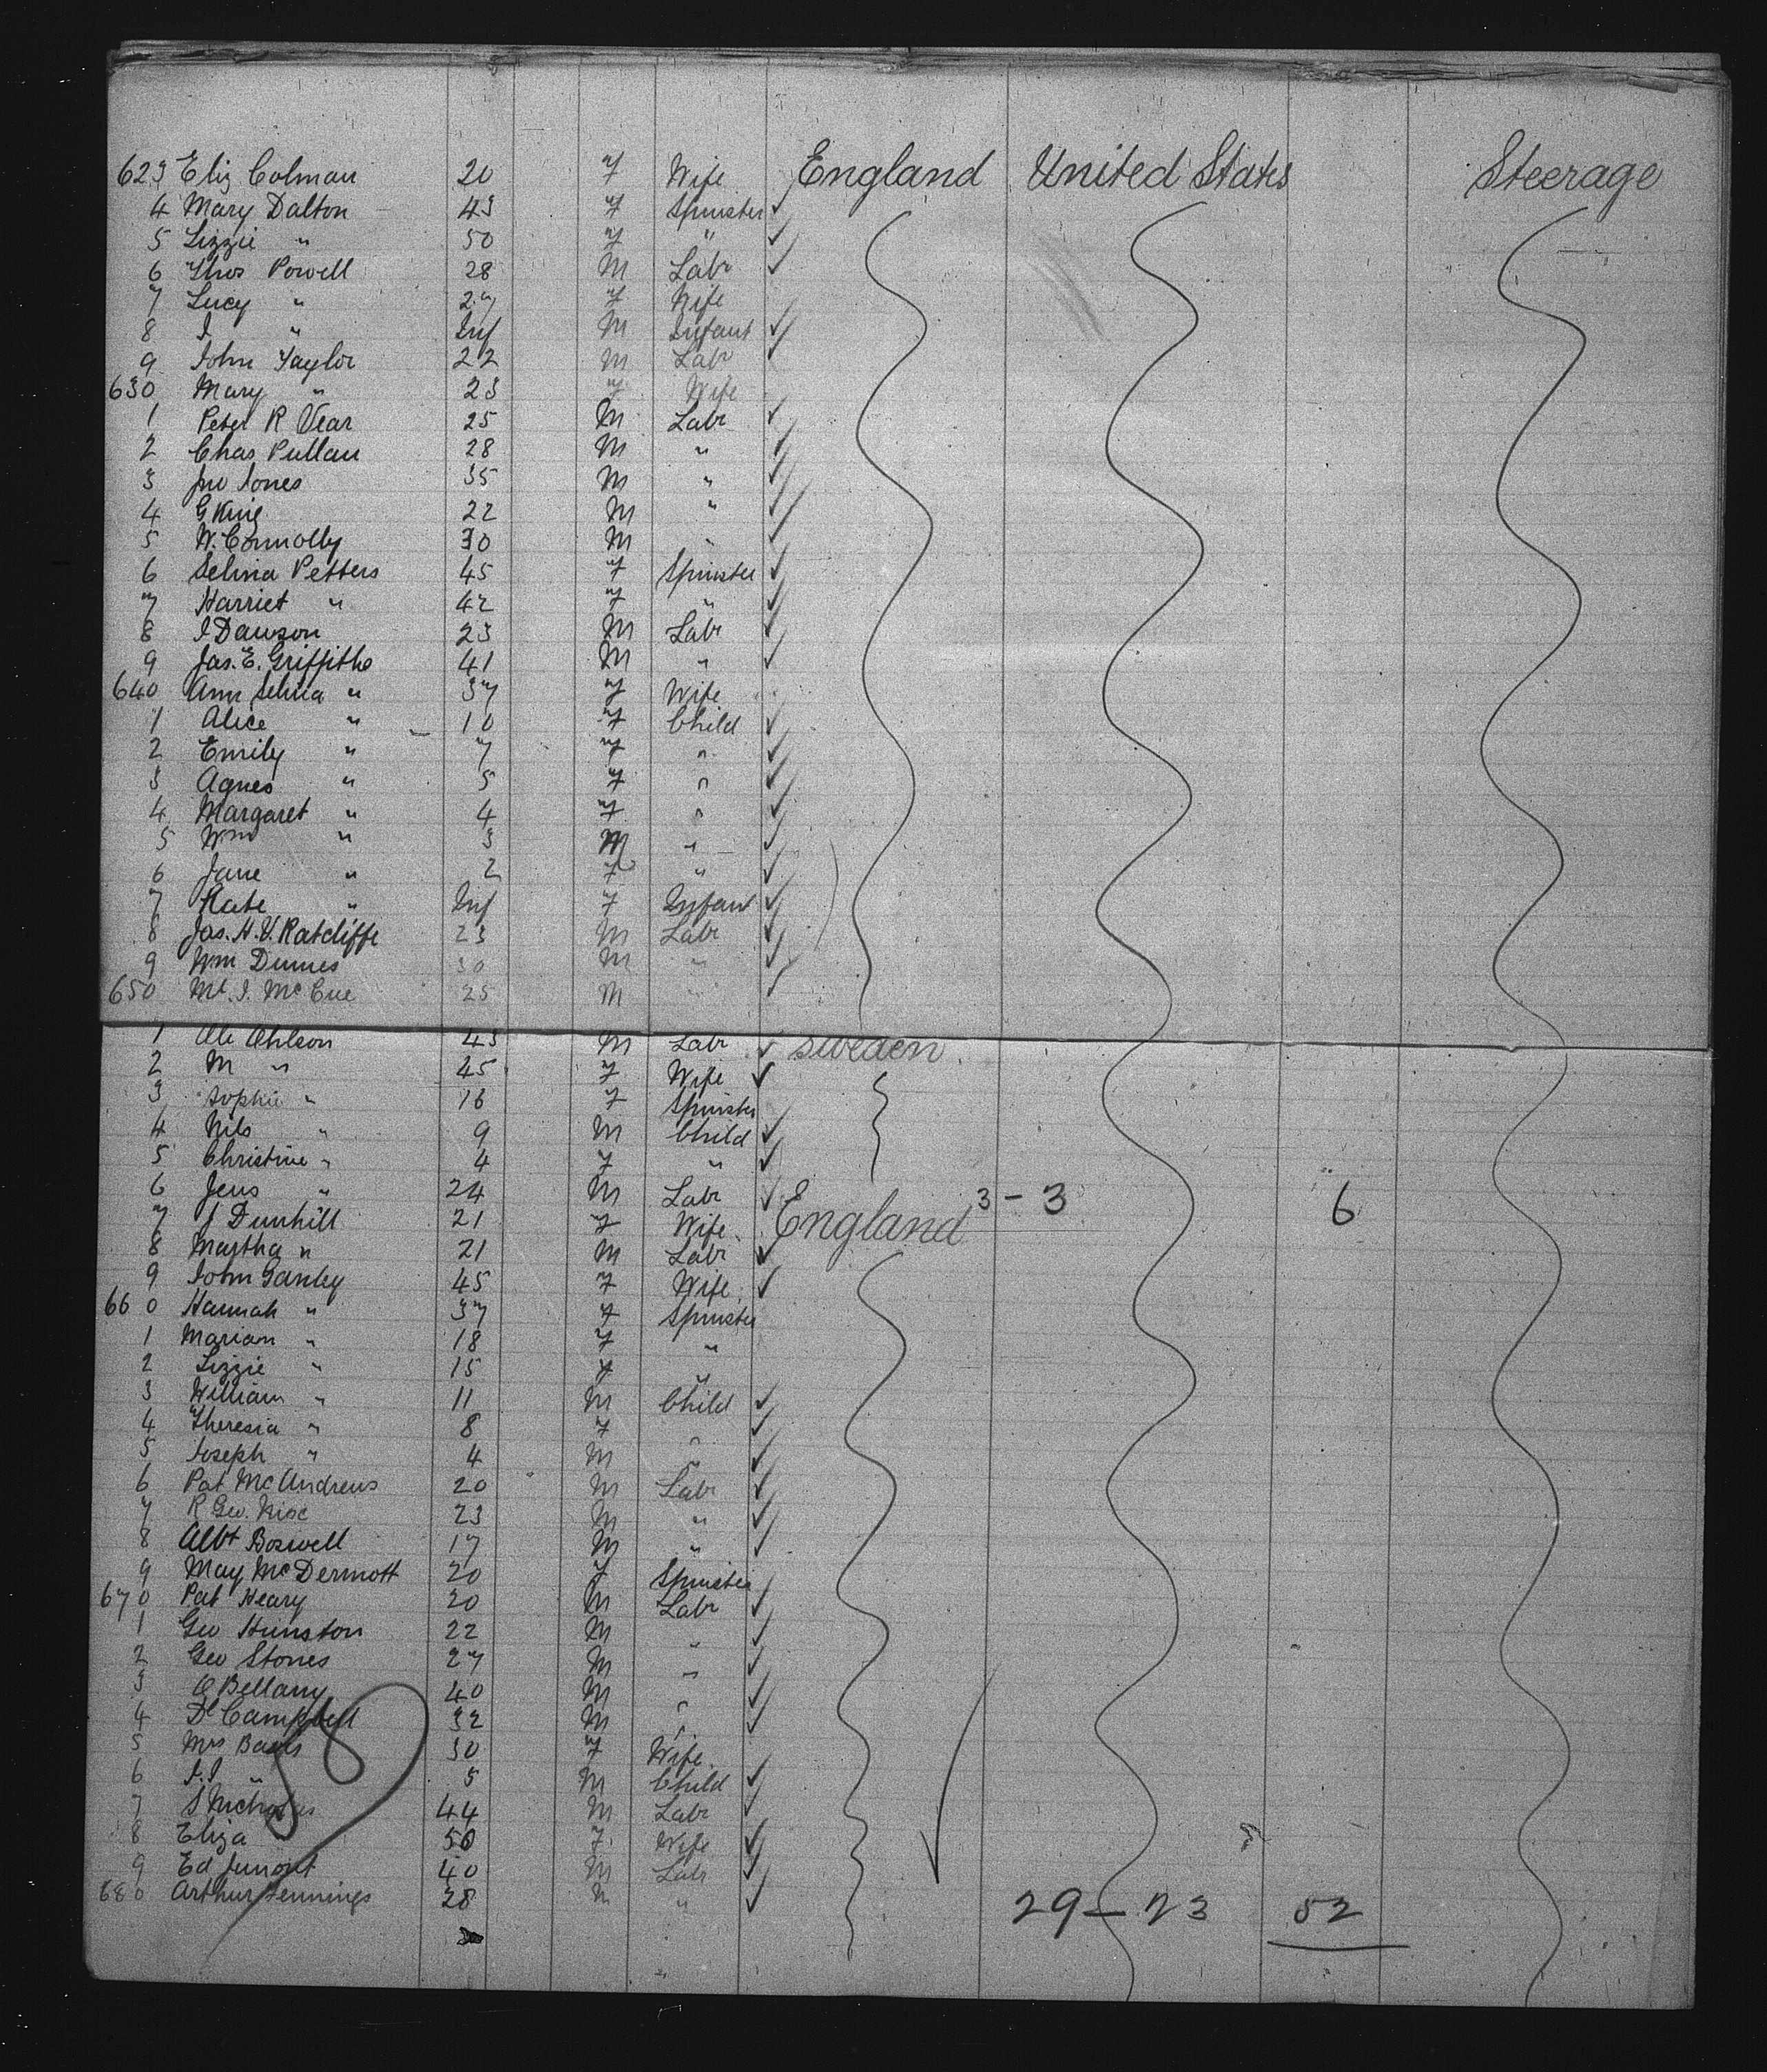 623 Eliz Colman 20 f Wife England United States Steerage
4 Mary Dalton 43 f Spinster ✓
5 Lizzie " 50 f " ✓
6 Thos Powell 28 M Labr ✓
7 Lucy " 27 f Wife
8 I " Inf M Infant ✓
9 John Taylor 22 M Labr ✓
630 Mary " 23 f Wife
1 Peter R Vear 25 M Labr ✓
2 Chas Pullan 28 M " ✓
3 Jno Jones 35 M " ✓
4 G King 22 M " ✓
5 W. Connolly 30 M " ✓
6 Selina Petters 45 f Spinster ✓
7 Harriet " 42 f " ✓
8 I Dawson 23 M Labr ✓
9 Jas. E. Griffiths 41 M " ✓
640 Ann Selina " 37 f Wife
1 Alice " 10 f Child ✓
2 Emily " 7 f " ✓
3 Agnes " 5 f " ✓
4 Margaret " 4 f " ✓
5 Wm " 3 M " ✓
6 Jane " 2 f " ✓
7 Kate " Inf f Infant ✓
8 Jas. H. V. Ratcliffe 23 M Labr ✓
9 Wm Dunnes 30 M " ✓
650 Mt. J. McCue 25 M " ✓
1 Ole Ohlson 43 M Labr ✓ Sweden
2 M " 45 f Wife ✓
3 Sophie " 16 f Spinster
4 Nils " 9 M Child ✓
5 Christine " 4 f " ✓
6 Jens " 24 M Labr ✓ 3 - 3 6
7 J Dunhill 21 f Wife England
8 Martha " 21 M Labr ✓
9 John Ganley 45 f Wife ✓
660 Hannah " 37 f Spinster
1 Mariam " 18 f "
2 Lizzie " 15 f "
3 William " 11 M Child ✓
4 Theresia " 8 f " ✓
5 Joseph " 4 M " ✓
6 Pat McAndrews 20 M Labr ✓
7 R Geo. 23 M " ✓
8 Albt Boswell 17 M " ✓
9 May McDermott 20 f Spinster
670 Pat Heary 20 M Labr ✓
1 Geo Hunston 22 M " ✓
2 Geo Stones 27 M " ✓
3 C Bellamy 40 M " ✓
4 Dl Campbell 32 M " ✓
5 Mrs 30 f Wife
6 J.J " 5 M Child ✓
7 S Nicholas 44 M Labr ✓
8 Eliza 50 f Wife ✓
9 Ed 40 M Labr ✓
680 Arthur Jennings 28 M " ✓ 29 - 23 52
58